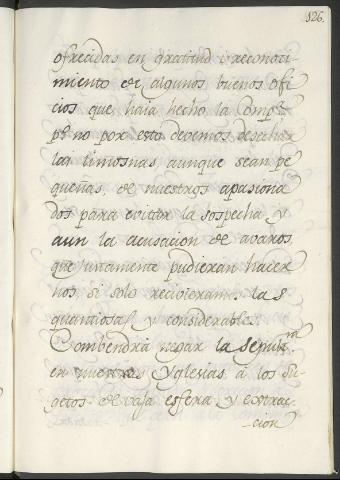 126.
ofrecidas en gratitud i reconoci-
miento de algunos buenos ofi
cios que haia hecho la Comp.ª
p.º no por esto devemos desechar
las limosnas, aunque sean pe
queñas, de nuestros apasiona
dos para evitar la sospecha y
aun la acusacion de avaros,
que justamente pudieran hacer
nos, si solo recivieramos las
quantiosas y considerables.
Combendria negar la sepult.ra
en nuestras Yglesias â los su
getos de vaja esfera y extrac-
-cion